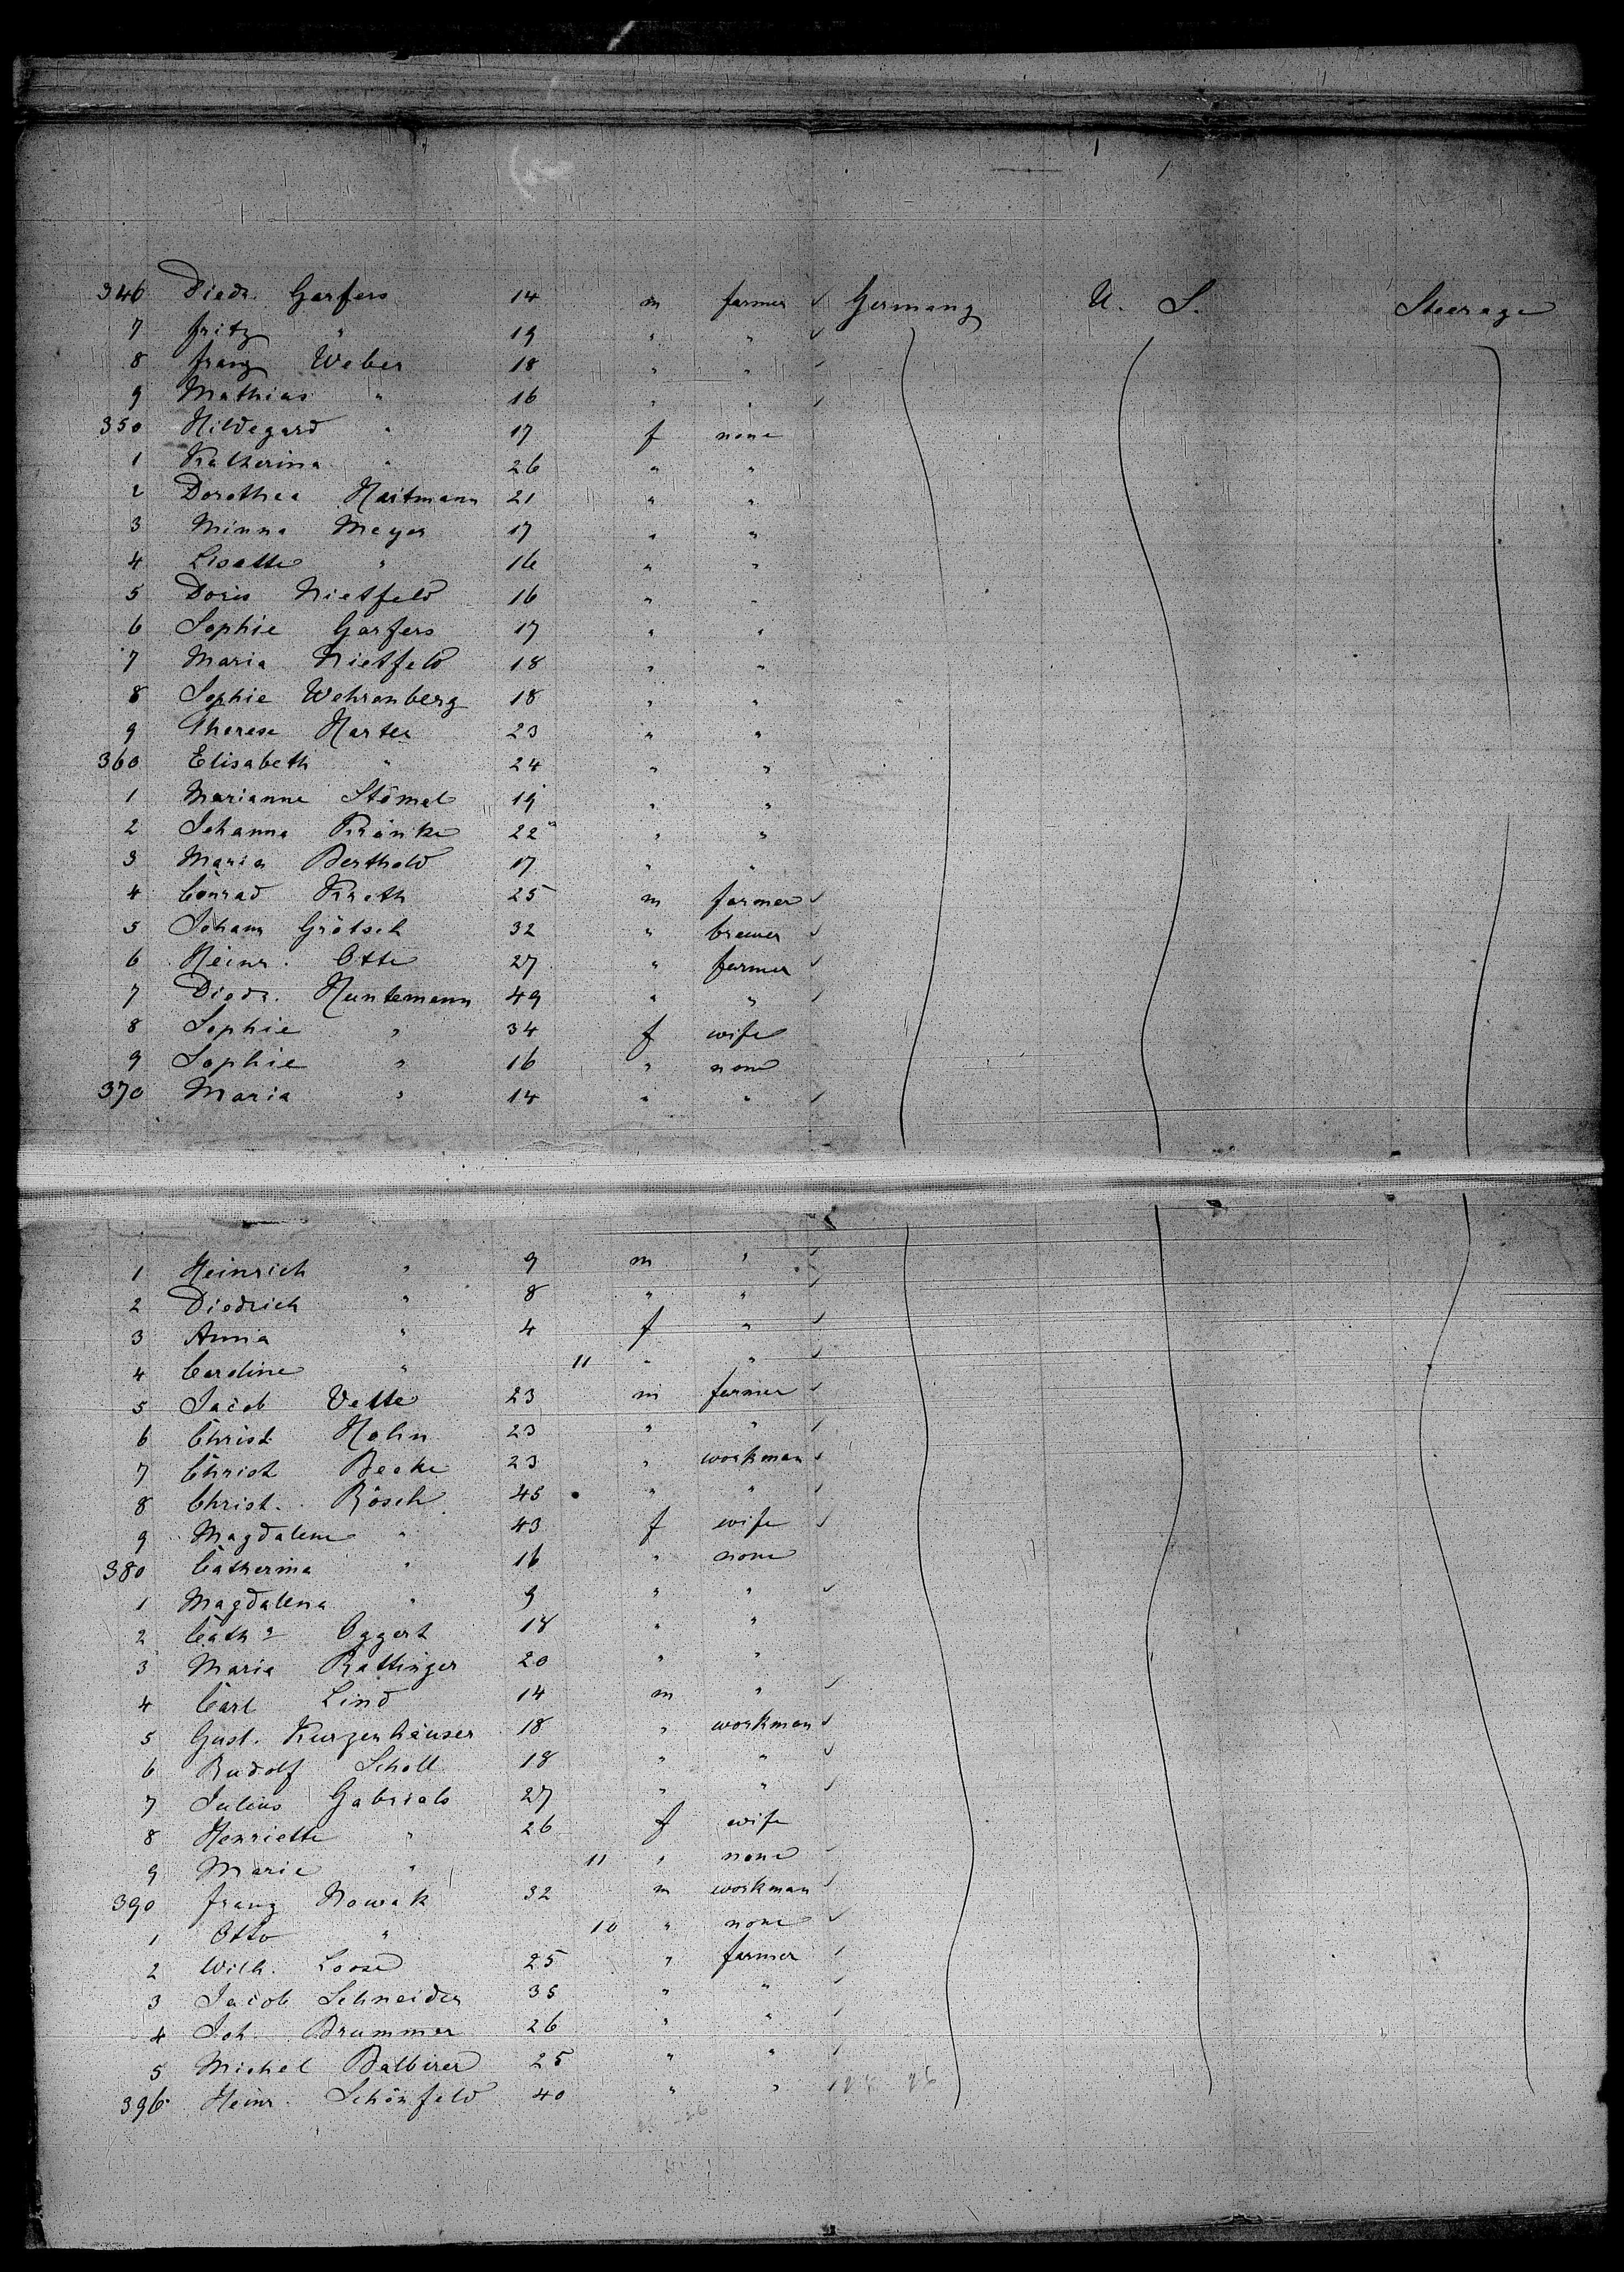 346 Diedr. Garfers 14 m farmer ✓ Germany U. S. Steerage
7 Fritz " 19 " " ✓
8 Franz Weber 18 " " ✓
9 Mathias " 16 " " ✓
350 Hildegard " 17 f none
1 Katherina " 26 " "
2 Dorothea Hartmann 21 " "
3 Minna Meyer 17 " "
4 Lisette " 16 " "
5 Doris Nietfeld 16 " "
6 Sophie Garfers 17 " "
7 Maria Nietfeld 18 " "
8 Sophie Wehrenberg 18 " "
9 Therese Harter 23 " "
360 Elisabeth " 24 " "
1 Marianne Stömel 19 " "
2 Johanna Krönke 22 " "
3 Maria Berthold 17 " "
4 Conrad Kreth 25 m farmer ✓
5 Johann Grötsch 32 " brewer ✓
6 Heinr. Otte 27 " farmer ✓
7 Diedr. Huntemann 49 " " ✓
8 Sophie " 34 f wife
9 Sophie " 16 " none
370 Maria " 14 " " ✓
1 Heinrich " 9 m " ✓
2 Diedrich " 8 " " ✓
3 Anna " 4 f " ✓
4 Caroline " 11 " " ✓
5 Jacob Vette 23 m farmer ✓
6 Christ. Hohn 23 " " ✓
7 Christ. Beeke 23 " workman ✓
8 Christ. Rösch 45 " " ✓
9 Magdalene " 43 f wife ✓
380 Catherina " 16 " none
1 Magdalena " 9 " " ✓
2 Cath. Eggert 18 " "
3 Maria Rattinger 20 " "
4 Carl Lind 14 m " ✓
5 Gust. Kurzenhäuser 18 " workman ✓
6 Rudolf Scholl 18 " " ✓
7 Julius Gabriels 27 " " ✓
8 Henriette " 26 f wife
9 Marie " 11 " none ✓
390 Franz Nowak 32 m workman ✓
1 Otto " 10 " none ✓
2 Wilh. Loose 25 " farmer ✓
3 Jacob Schneider 35 " " ✓
4 Joh. Brummer 26 " " ✓
5 Michel Balbirer 25 " " ✓
396 Heinr. Schönfeld 40 " " ✓